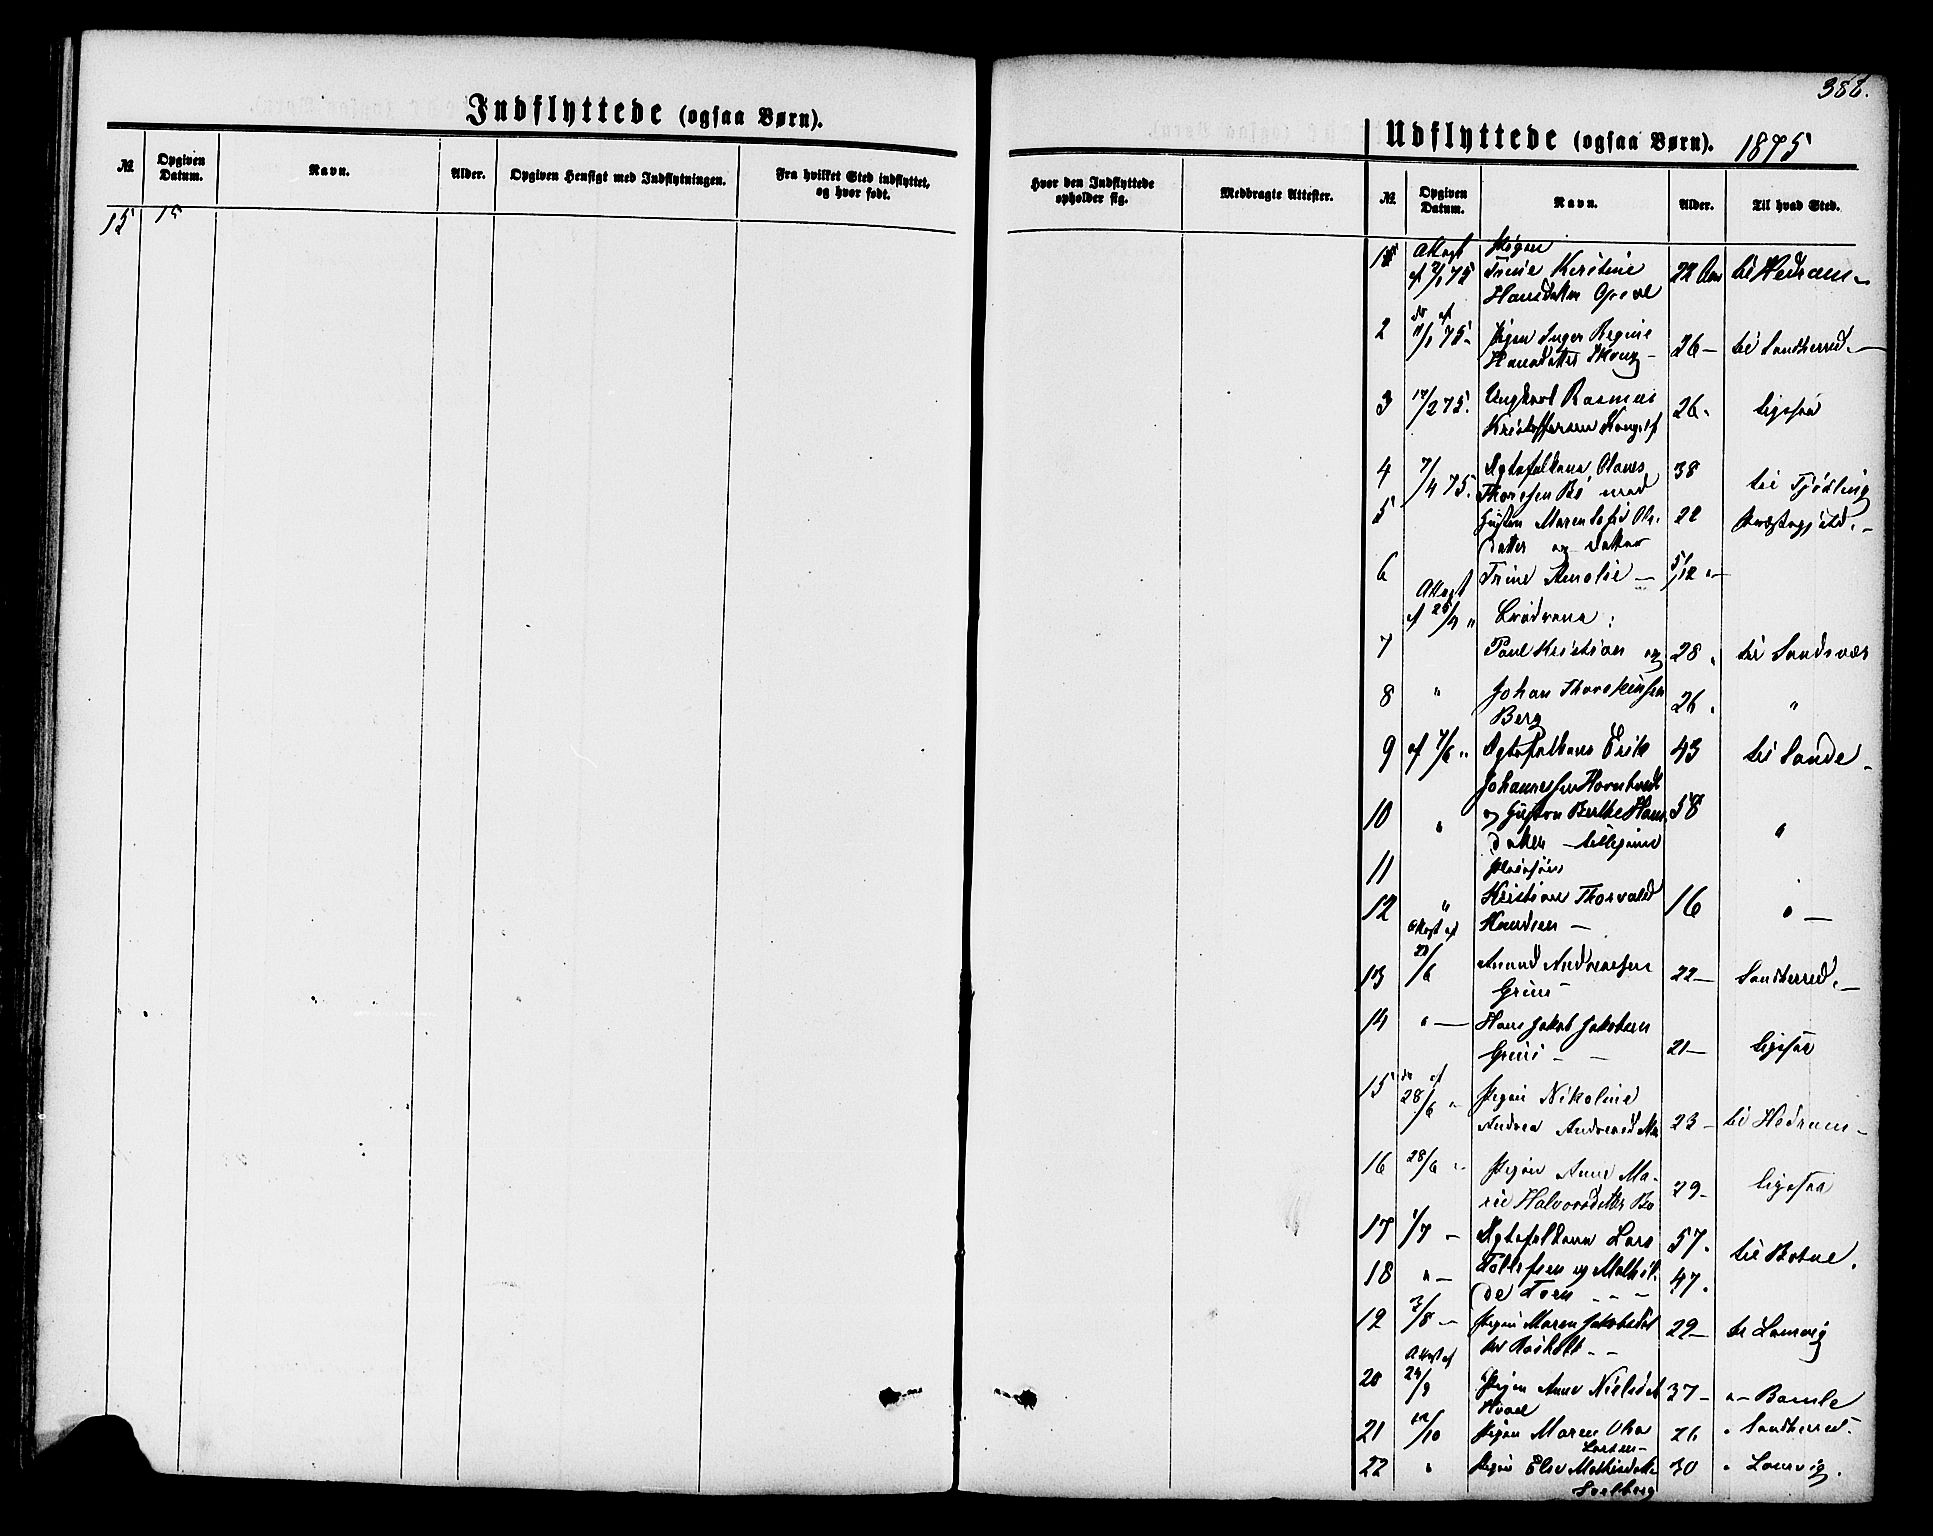 388.
Indflyttede (ogsaa Børn).
№
Opgiven Datum.
Navn.
Alder.
Opgiven Hensigt med Indflytningen.
Fra hvilket Sted indflyttet, og hvor født.
Hvor den Indflyttede opholder sig.
Medbragte Attester.
15 15
Udflyttede (ogsaa Børn). 1875
№
Opgiven Datum.
Navn.
Alder.
Til hvad Sted.
1 Attest Pigen
af 2/1 75 Trine Kirstine 22 Aar til Hedrum -
Hansdatter
2 do af 11/1 75. Pigen Inger Regine 26 - til Sandherred. -
Hansdatter Skoug -
3 17/2 75. Ungkarl Rasmus 26. ligesaa
Kristoffersen
4 7/4 75. Ægtefolkene Hans 38 til Tjødling
Thoresen Bø med
5 Hustru Maren Sofie Ols- 22 Præstegjeld. -
datter og datter
6 Trine Amalie - 5/12 -
Attest
af 28/4 " Brødrene :
7 Paul Kristian og 28 . til Sandsvær
8 " Johan Thorkensen 26 . "
Berg
9 af 7/6 " Ægtefolkene Erik 43 til Sande -
Johannesen Horntvedt
10 " og Hustru Berthe Hans- 58 "
datter - tilligemed
11 Pleiesøn
12 " Kristian Thorvald 16 " -
Knudsen -
Attest af
13 23/6 Amund Andreasen 22 - Sandherred. -
Grini -
14 " - Hans Jakob Jakobsen
Grini - - 21 - ligesaa
15 do af
28/6 " Pigen Nikoline
Andrea Andreasd 23 - til Hedrum -
16 28/6 " Pigen Anne Ma-
rie Halvorsdatter Bø 29 - ligesaa
17 1/7 - Ægtefolkene Lars 57. til Botne.
18 " - Tollefsen og Mathil- 47.
de Toen - - -
19 3/8 - Pigen Maren Jakobsdat 29 - til Laurvig
ter Røsholt - -
Attest af
20 24/9 Pigen Anne Nielsdat 37 - " - Bamle
21 12/10 Pigen Maren Olea 26 " Sandherred.
Larsen -
22 " Pigen Elise Mathisdatter 30 " Laurvig.
Solberg